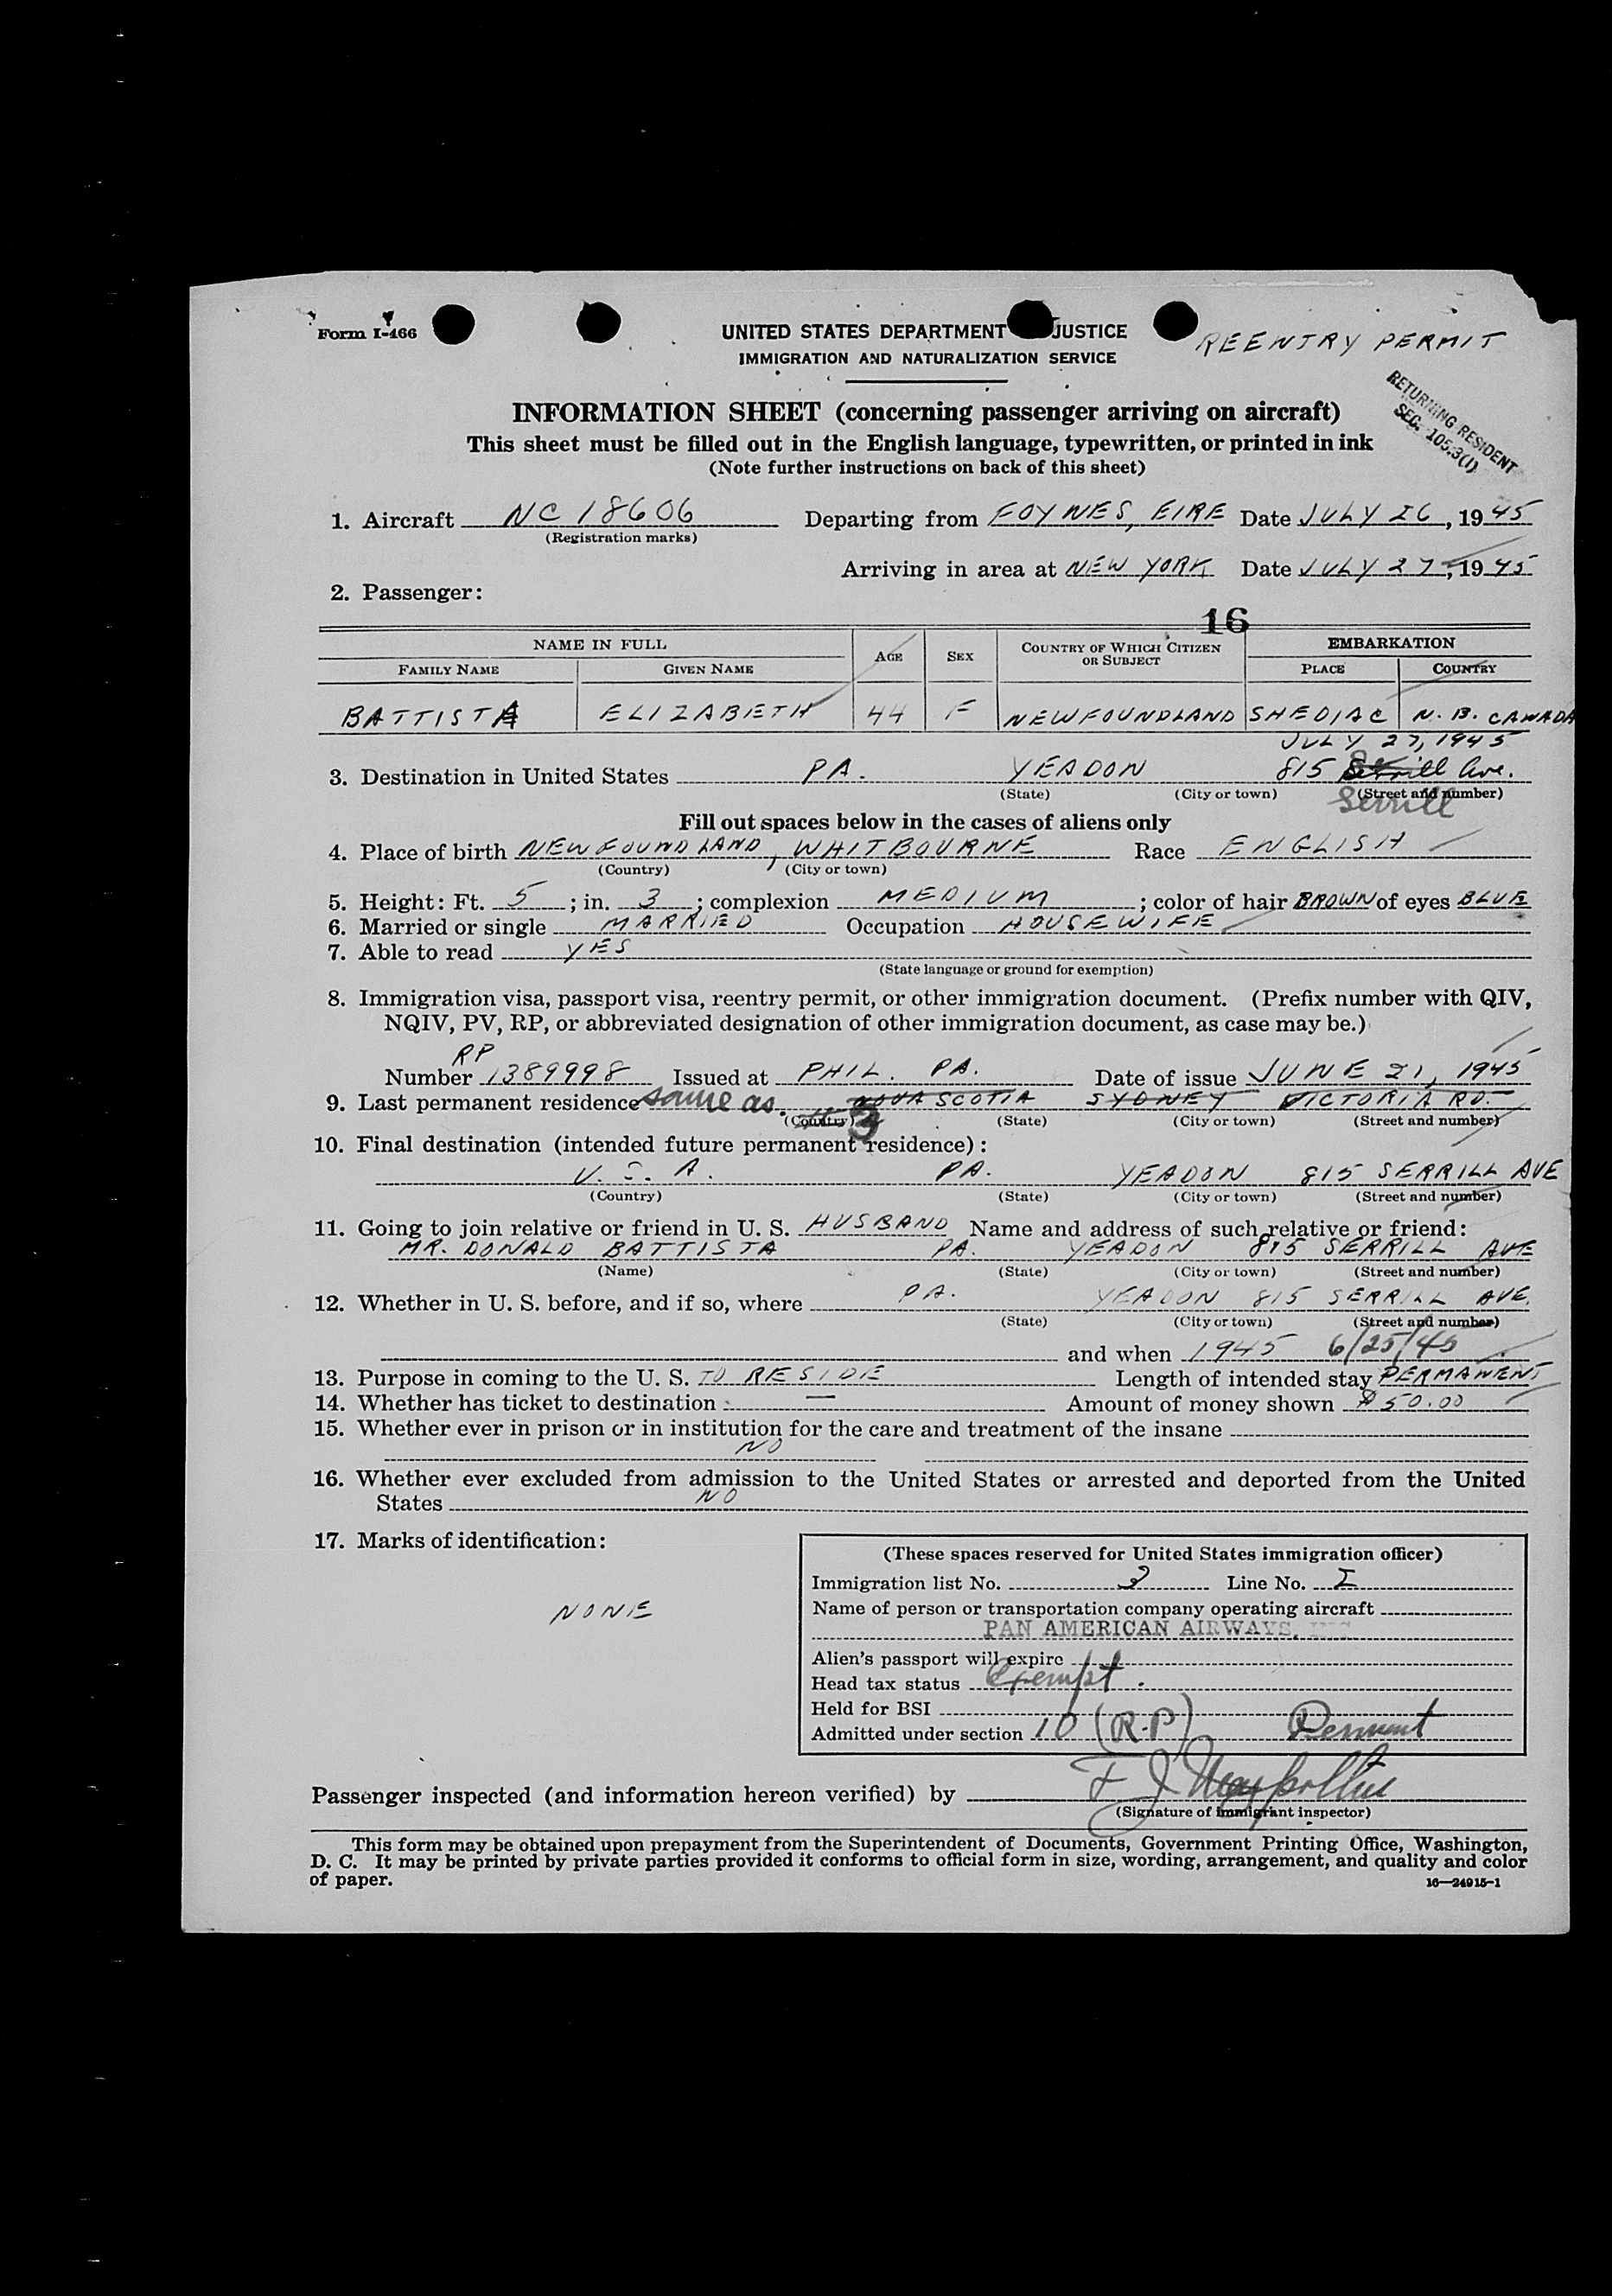 Form I-466
UNITED STATES DEPARTMENT JUSTICE
IMMIGRATION AND NATURALIZATION SERVICE
REENTRY PERMIT
RETURNING RESIDENT
SEC. 105.3(1)
INFORMATION SHEET (concerning passenger arriving on aircraft)
This sheet must be filled out in the English language, typewritten, or printed in ink
(Note further instructions on back of this sheet)
1. Aircraft NC 18606 Departing from FOYNES, EIRE Date JULY 26, 1945
(Registration marks)
Arriving in area at NEW YORK Date JULY 27, 1945
2. Passenger:
16
NAME IN FULL AGE SEX COUNTRY OF WHICH CITIZEN OR SUBJECT EMBARKATION
FAMILY NAME GIVEN NAME PLACE COUNTRY
BATTISTA ELIZABETH 44 F NEWFOUNDLAND SHEDIAC N. B. CANADA
JULY 27, 1945
3. Destination in United States PA. YEADON 815 Serrill Ave.
(State) (City or town) (Street and number)
Serrill
Fill out spaces below in the cases of aliens only
4. Place of birth NEWFOUNDLAND, WHITBOURNE Race ENGLISH
(Country) (City or town)
5. Height: Ft. 5; in. 3; complexion MEDIUM; color of hair BROWN of eyes BLUE
6. Married or single MARRIED Occupation HOUSEWIFE
7. Able to read YES
(State language or ground for exemption)
8. Immigration visa, passport visa, reentry permit, or other immigration document. (Prefix number with QIV,
NQIV, PV, RP, or abbreviated designation of other immigration document, as case may be.)
RP
Number 1389998 Issued at PHIL. PA. Date of issue JUNE 21, 1945
9. Last permanent residence same as 3 NOVA SCOTIA SYDNEY VICTORIA RD.
(Country) (State) (City or town) (Street and number)
10. Final destination (intended future permanent residence):
U. S. A. PA. YEADON 815 SERRILL AVE
(Country) (State) (City or town) (Street and number)
11. Going to join relative or friend in U. S. HUSBAND Name and address of such relative or friend:
MR. DONALD BATTISTA PA. YEADON 815 SERRILL AVE
(Name) (State) (City or town) (Street and number)
12. Whether in U. S. before, and if so, where PA. YEADON 815 SERRILL AVE.
(State) (City or town) (Street and number)
and when 1945 6/25/45
13. Purpose in coming to the U. S. TO RESIDE Length of intended stay PERMANENT
14. Whether has ticket to destination — Amount of money shown $50.00
15. Whether ever in prison or in institution for the care and treatment of the insane
NO
16. Whether ever excluded from admission to the United States or arrested and deported from the United
States NO
17. Marks of identification:
NONE
(These spaces reserved for United States immigration officer)
Immigration list No. 3 Line No. I
Name of person or transportation company operating aircraft
PAN AMERICAN AIRWAYS, INC
Alien's passport will expire
Head tax status Exempt.
Held for BSI
Admitted under section 10 (R.P)
Passenger inspected (and information hereon verified) by F J
(Signature of immigrant inspector)
This form may be obtained upon prepayment from the Superintendent of Documents, Government Printing Office, Washington,
D. C. It may be printed by private parties provided it conforms to official form in size, wording, arrangement, and quality and color
of paper.
16—24915-1